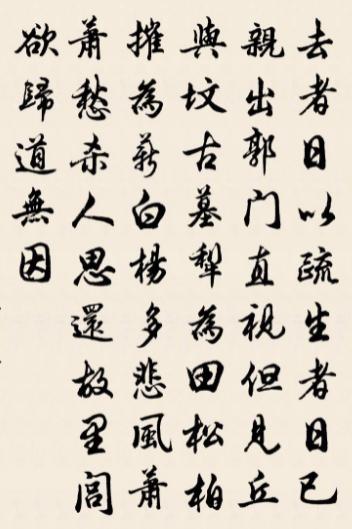 去者日以疏生者日已
親出郭门直視但見丘
與坟古墓犁為田松柏
摧為薪白楊多悲風蕭
蕭愁杀人思還故里闾
欲歸道無因